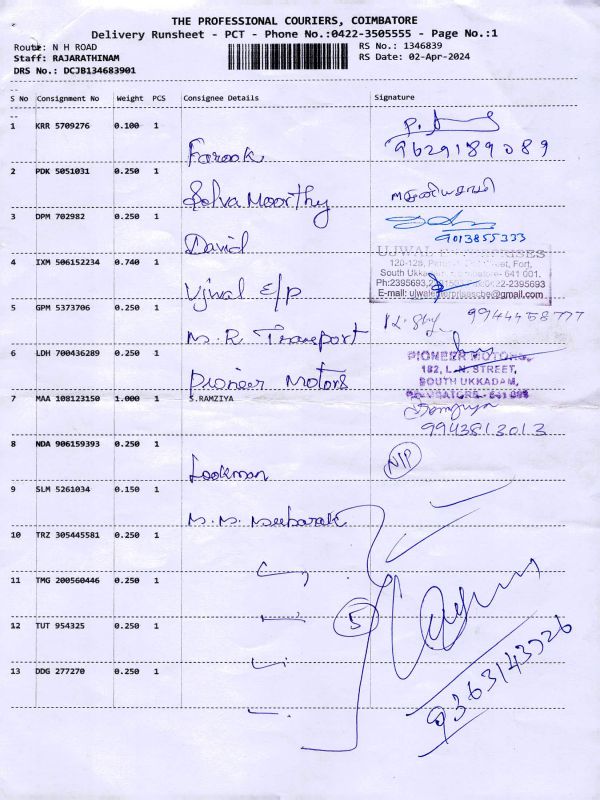 THE PROFESSIONAL COURIERS, COIMBATORE
Delivery Runsheet - PCT - Phone No.:0422-3505555 - Page No.:1
Route: N H ROAD
RS No.: 1346839
Staff: RAJARATHINAM
RS Date: 02-Apr-2024
DRS No.: DCJB134683901
S No Consignment No Weight PCS Consignee Details Signature
1 KRR 5709276 0.100 1
Farook 9629189089
2 PDK 5051031 0.250 1
Selva Moorthy
3 DPM 702982 0.250 1
David 9013855333
UJWAL ENTERPRISES
4 IXM 506152234 0.740 1
120-128, Street, Fort,
South Ukkadam, Coimbatore- 641 001.
Ph:2395693, 0422-2395693
E-mail: ujwalenterprisescbe@gmail.com
Ujwal E/P
5 GPM 5373706 0.250 1
M. R. Transport
6 LDH 700436289 0.250 1
Pioneer Motors
PIONEER MOTORS
182, L. N. STREET,
SOUTH UKKADAM,
7 MAA 108123150 1.000 1 S.RAMZIYA
9943813013
8 NDA 906159393 0.250 1
Lookman N/P
9 SLM 5261034 0.150 1
M. M. Meebarak
10 TRZ 305445581 0.250 1
11 TMG 200560446 0.250 1
5
12 TUT 954325 0.250 1
13 DDG 277270 0.250 1